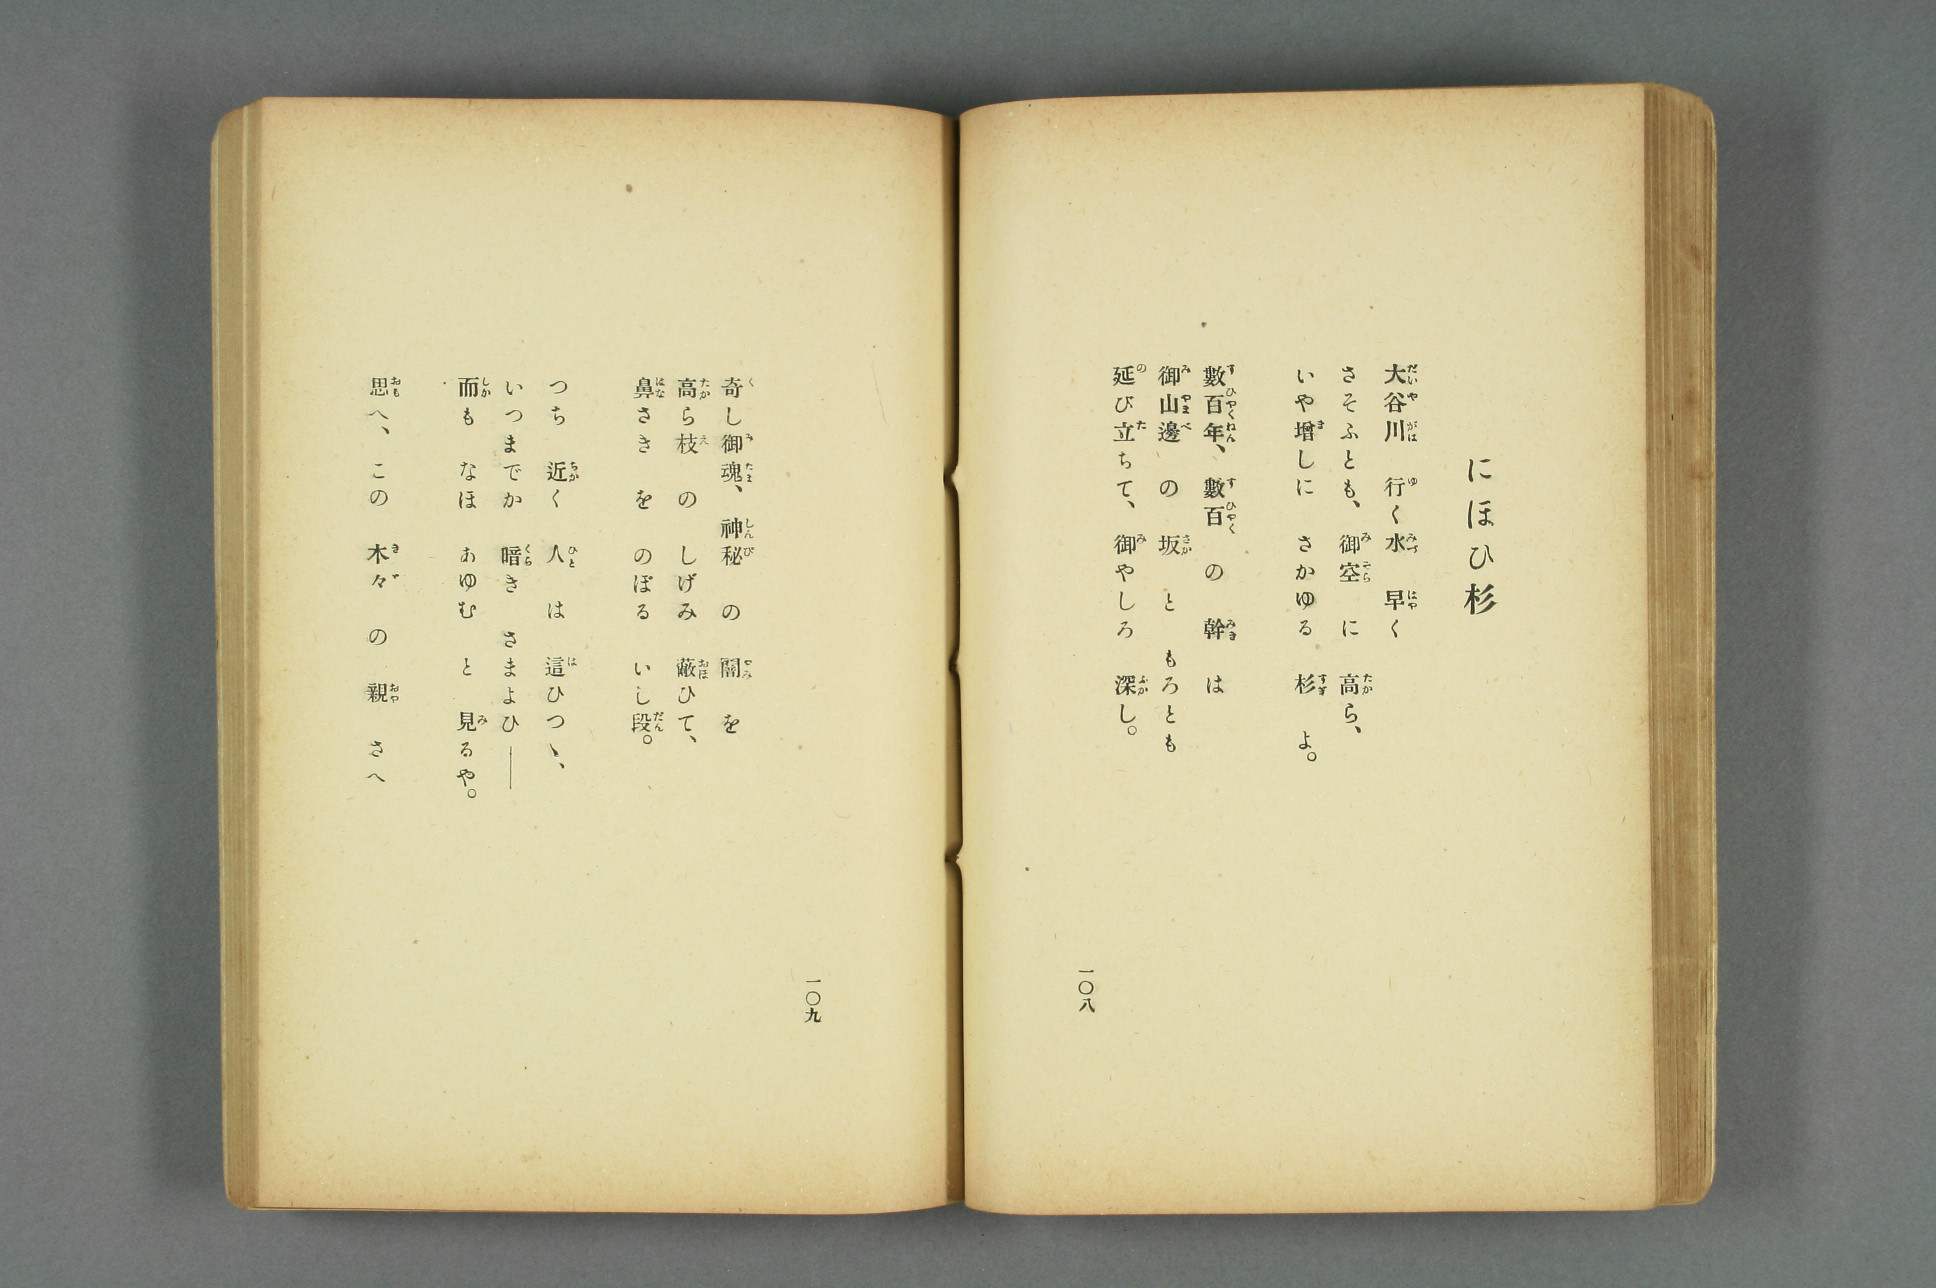 にほひ杉
大谷川　行く水　早く
さそふとも、御空　に　高ら、
いや増しに　さかゆる　杉　よ。
數百年、數百　の　幹　は
御山邊　の　坂　と　もろとも
延び立ちて、御やしろ　深し。
一〇八
奇し御魂、神秘　の　闇　を
高ら枝　の　しげみ　蔽ひて、
鼻さき　を　のぼる　いし段。
つち　近く　人　は　這ひつゝ、
いつまでか　暗き　さまよひ――
而も　なほ　あゆむ　と　見るや。
思へ、この　木々　の　親　さへ
一〇九